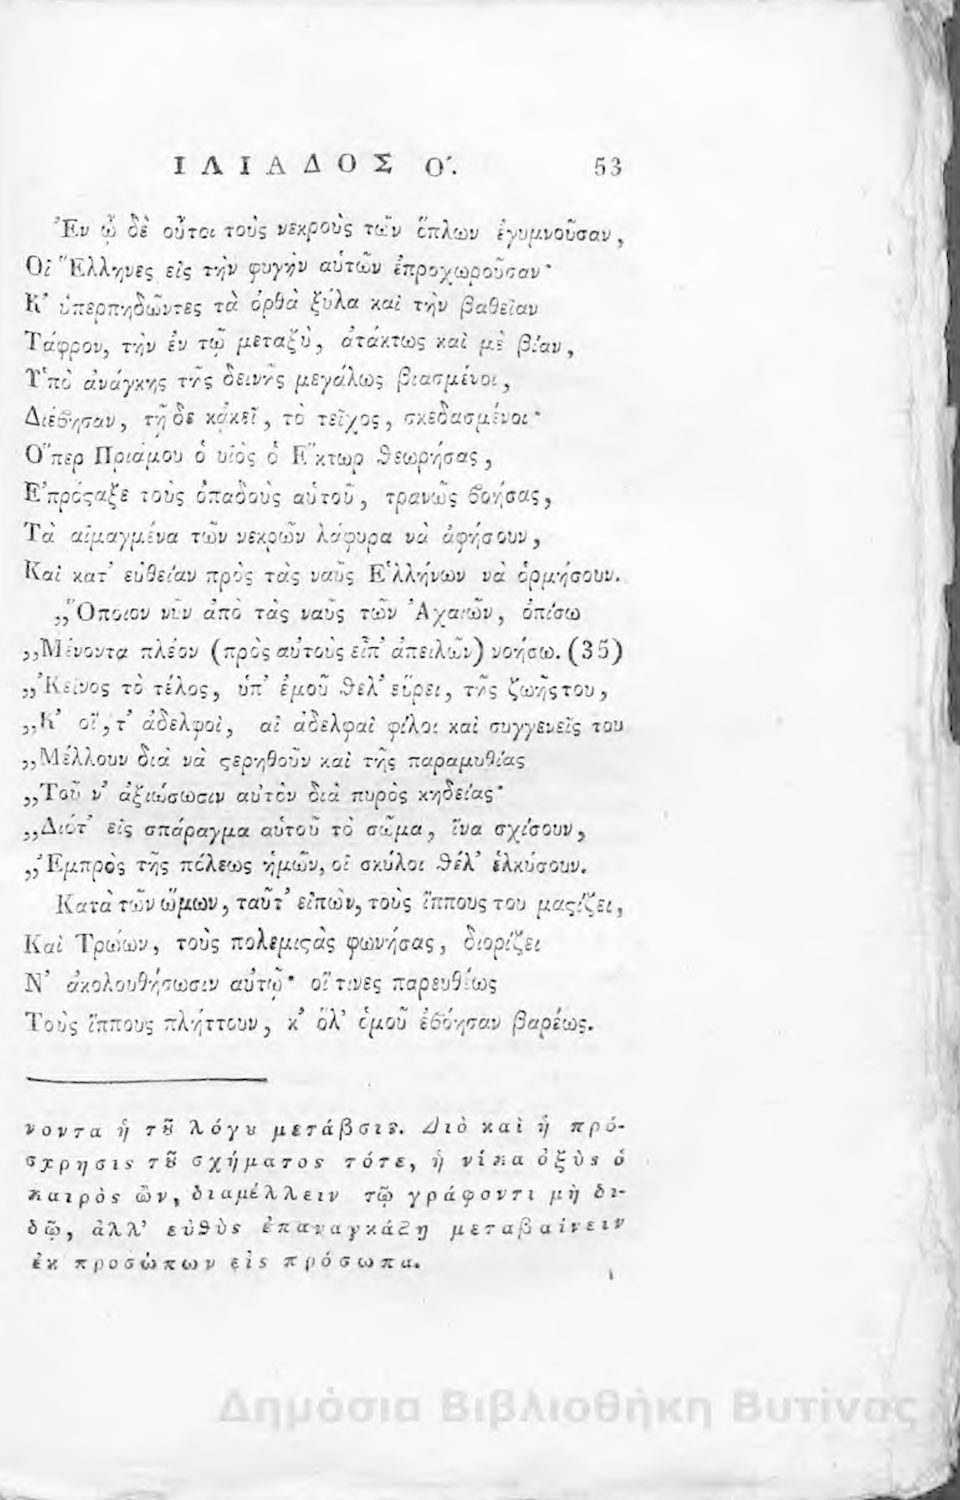 ΙΛΙΑΔΟΣ Ο'. 53
Ἐν ᾧ δὲ οὗτοι τοὺς νεκροὺς τῶν ὅπλων ἐγυμνοῦσαν,
Οἱ Ἕλληνες εἰς τὴν φυγὴν αὑτῶν ἐπροχωροῦσαν·
Κ' ὑπερπηδῶντες τὰ ὀρθὰ ξύλα καὶ τὴν βαθεῖαν
Τάφρον, τὴν ἐν τῷ μεταξὺ, ἀτάκτως καὶ μὲ βίαν,
Ὑπὸ ἀνάγκης τῆς δεινῆς μεγάλως βιασμένοι,
Διέβησαν, τῇδε κᾀκεῖ, τὸ τεῖχος, σκεδασμένοι·
Ὅπερ Πριάμου ὁ υἱὸς ὁ Ἕκτωρ θεωρήσας,
Ἐπρόςαξε τοὺς ὀπαδοὺς αὑτοῦ, τρανῶς βοήσας,
Τὰ αἱμαγμένα τῶν νεκρῶν λάφυρα νὰ ἀφήσουν,
Καὶ κατ' εὐθείαν πρὸς τὰς ναῦς Ἑλλήνων νὰ ὁρμήσουν.
,,Ὅποιον νῦν ἀπὸ τὰς ναῦς τῶν Ἀχαιῶν, ὀπίσω
,,Μένοντα πλέον (πρὸς αὐτοὺς εἶπ' ἀπειλῶν) νοήσω. (35)
,,Κεῖνος τὸ τέλος, ὑπ' ἐμοῦ θελ' εὕρει, τῆς ζωῆς του,
,,Κ' οἵ, τ' ἀδελφοὶ, αἱ ἀδελφαὶ φίλοι καὶ συγγενεῖς του
,,Μέλλουν διὰ νὰ ςερηθοῦν καὶ τῆς παραμυθίας
,,Τοῦ ν' ἀξιώσωσιν αὐτὸν διὰ πυρὸς κηδείας·
,,Διότ' εἰς σπάραγμα αὑτοῦ τὸ σῶμα, ἵνα σχίσουν,
,,Ἐμπρὸς τῆς πόλεως ἡμῶν, οἱ σκύλοι θέλ' ἑλκύσουν.
Κατὰ τῶν ὤμων, ταῦτ' εἰπὼν, τοὺς ἵππους του μαςίζει,
Καὶ Τρώων, τοὺς πολεμιςὰς φωνήσας, διορίζει
Ν' ἀκολουθήσωσιν αὐτῷ· οἵ τινες παρευθέως
Τοὺς ἵππους πλήττουν, κ' ὅλ' ὁμοῦ ἐβόησαν βαρέως.
νοντα ἡ τȣ͂ λόγȣ μετάβσις. Διὸ καὶ ἡ πρό-
σχρησις τȣ͂ σχήματος τότε, ἡνίκα ὀξὺς ὁ
καιρὸς ὢν, διαμέλλειν τῷ γράφοντι μὴ δι-
δῷ, ἀλλ' εὐθὺς ἐπαναγκάζῃ μεταβαίνειν
ἐκ προσώπων εἰς πρόσωπα.
Δημόσια Βιβλιοθήκη Βυτίνας